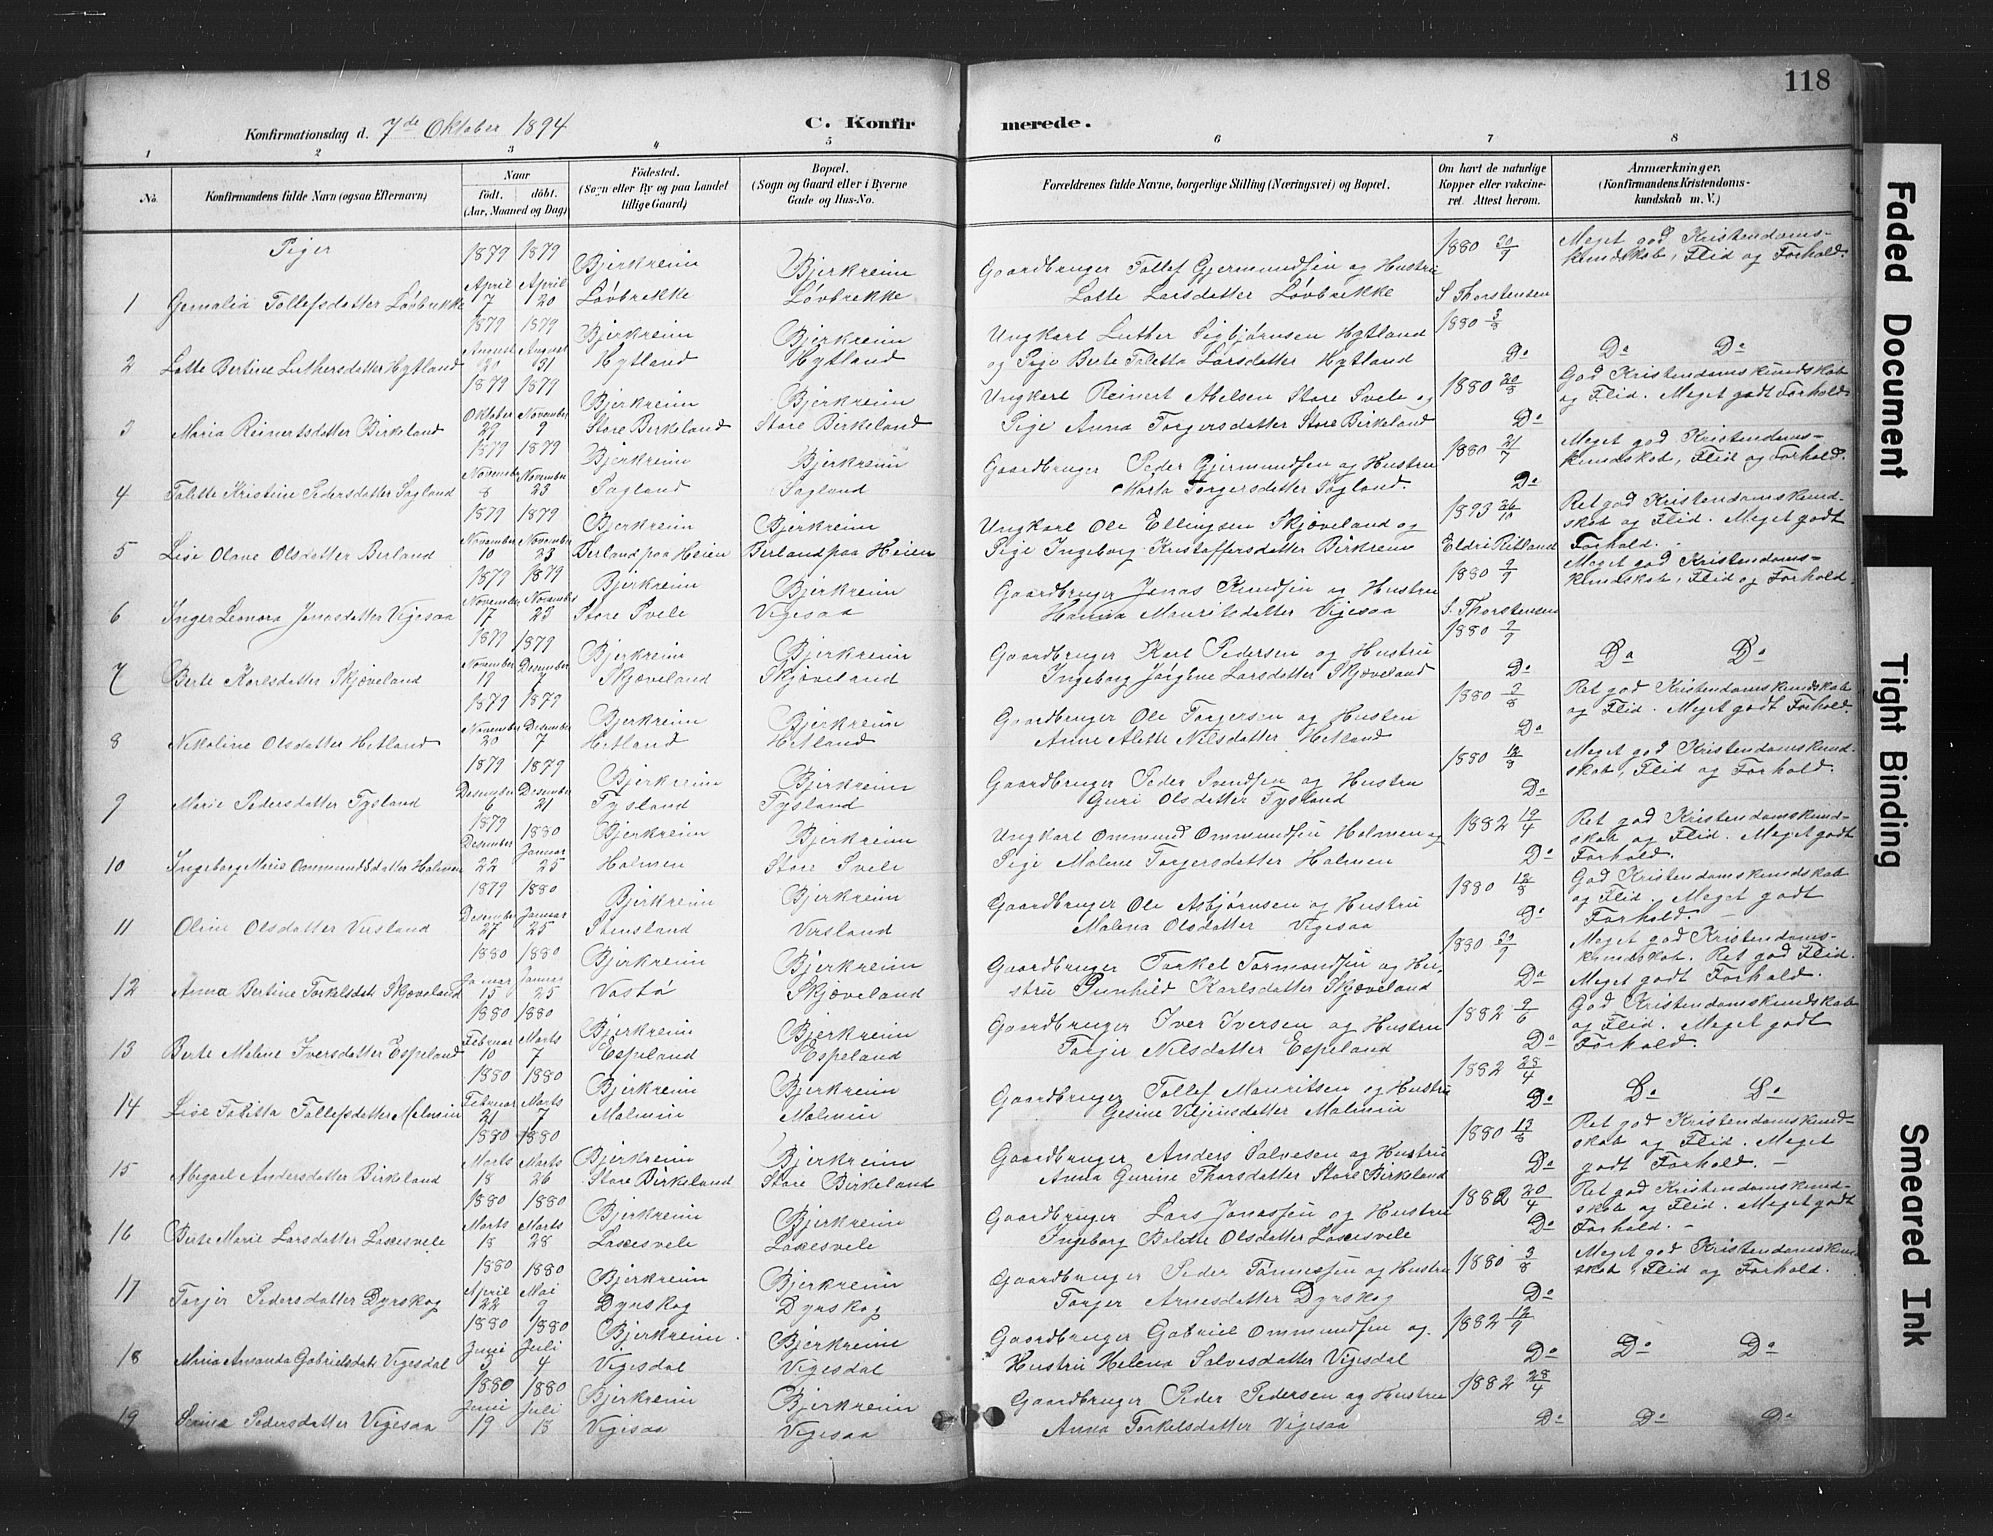 118
Konfirmationsdag d. 7de Oktober 1894
C. Konfirmerede.
1 2 3 4 5 6 7 8
No.
Konfirmandens fulde Navn (ogsaa Efternavn)
Naar
Födt. döbt.
(Aar, Maaned og Dag)
Födested.
(Sogn eller By og paa Landet
tillige Gaard)
Bopæl.
(Sogn og Gaard eller i Byerne
Gade og Hus-No.
Forældrenes fulde Navne, borgerlige Stilling (Næringsvei) og Bopæl.
Om havt de naturlige
Kopper eller vakcine-
ret. Attest herom.
Anmærkninger.
(Konfirmandens Kristendoms-
kundskab m. V.)
Piger
1 Gemalia Tollefsdatter Løvbrekke 1879 April 7 1879 April 20 Bjerkreim Løvbrekke Bjerkreim Løvbrekke
Gaardbruger Tollef Gjermundsen og Hustru
Lotte Larsdatter Løvbrekke
1880 30/9 S Thorstensen
Meget god Kristendoms-
kundskab, Flid og Forhold.
2 Lotte Bertine Luthersdatter Hytland 1879 August 20 1879 August 31 Bjerkreim Hytland Bjerkreim Hytland
Ungkarl Luther Sigbjørnsen Hytland
og Pige Berte Talette Larsdatter Hytland
1880 3/8 Do
Do Do
3 Maria Reinertsdatter Birkeland 1879 Oktober 29 1879 November 9 Bjerkreim Store Birkeland Bjerkreim Store Birkeland
Ungkarl Reinert Abelsen Store Svele og
Pige Anna Torgersdatter Store Birkeland
1880 20/8 Do
God Kristendomskundskab
og Flid. Meget godt Forhold
4 Talette Kristine Pedersdatter Sagland 1879 November 8 1879 November 23 Bjerkreim Sagland Bjerkreim Sagland
Gaardbruger Peder Gjermundsen og Hustru
Marta Torgersdatter Sagland.
1880 21/7 Do
Meget god Kristendoms-
kundskab, Flid og Forhold.
5 Lise Olave Olsdatter Berland 1879 November 10 1879 November 23 Bjerkreim Berland paa Heien Bjerkreim Berland paa Heien
Ungkarl Ole Ellingsen Skjæveland og
Pige Ingeborg Kristoffersdatter Birkrem
1893 26/10 Eldri Ritland
Ret god Kristendomskund-
skab og Flid. Meget godt
Forhold.
6 Inger Leonora Jonasdatter Vigesaa 1879 November 17 1879 November 23 Bjerkreim Store Svele Bjerkreim Vigesaa
Gaardbruger Jonas Knudsen og Hustru
Hanna Mauritsdatter Vigesaa
1880 9/9 S. Thorstensen
Meget god Kristendoms-
kundskab, Flid og Forhold.
7 Berte Karlsdatter Skjæveland 1879 November 19 1879 Desember 7 Bjerkreim Skjæveland Bjerkreim Skjæveland
Gaardbruger Karl Pedersen og Hustru
Ingeborg Jørgine Larsdatter Skjæveland
1880 9/9 Do
Do Do
8 Nikoline Olsdatter Hetland 1879 November 20 1879 Desember 7 Bjerkreim Hetland Bjerkreim Hetland
Gaardbruger Ole Torgersen og Hustru
Anne Alette Nilsdatter Hetland
1880 9/8 Do
Ret god Kristendomskundskab
og Flid. Meget godt Forhold.
9 Marie Pedersdatter Tysland 1879 Desember 6 1879 Desember 21 Bjerkreim Tysland Bjerkreim Tysland
Gaardbruger Peder Svendsen og Hustru
Guri Olsdatter Tysland
1880 12/8 Do
Meget god Kristendomskund-
skab, Flid og Forhold.
10 Ingeborg Marie Ommundsdatter Holmen 1879 Desember 22 1880 Januar 25 Bjerkreim Holmen Bjerkreim Store Svele
Ungkarl Ommund Ommundsen Holmen og
Pige Malene Torgersdatter Holmen
1882 19/4 Do
Ret god Kristendomskund-
skab og Flid. Meget godt
Forhold.
11 Oline Olsdatter Versland 1879 Desember 27 1880 Januar 25 Bjerkreim Stensland Bjerkreim Versland
Gaardbruger Ole Asbjørnsen og Hustru
Malena Olsdatter Vigesaa
1880 12/8 Do
God Kristendomskundskab
og Flid. Meget godt
Forhold.
12 Anna Bertine Torkelsdat. Skjæveland 1880 Januar 15 1880 Januar 25 Bjerkreim Vastø Bjerkreim Skjæveland
Gaardbruger Torkel Tormodsen og Hu-
stru Gunhild Karlsdatter Skjæveland
1880 30/9 Do
Meget god Kristendoms-
kundskab. Ret god Flid.
Meget godt Forhold.
13 Berte Malene Iversdatter Espeland 1880 Februar 10 1880 Marts 7 Bjerkreim Espeland Bjerkreim Espeland
Gaardbruger Iver Iversen og Hustru
Torjer Nilsdatter Espeland
1882 9/6 Do
God Kristendomskundskab
og Flid. Meget godt
Forhold.
14 Lise Talitta Tollefsdatter Malmin 1880 Februar 21 1880 Marts 7 Bjerkreim Malmin Bjerkreim Malmin
Gaardbruger Tollef Mauritsen og Hustru
Gesine Viljensdatter Malmin
1882 28/4 Do
Do Do
15 Abigael Andersdatter Birkeland 1880 Marts 18 1880 Marts 26 Bjerkreim Store Birkeland Bjerkreim Store Birkeland
Gaardbruger Anders Salvesen og Hustru
Anna Gurine Thorsdatter Store Birkeland
1880 13/8 Do
Ret god Kristendomskund-
skab og Flid. Meget
godt Forhold.
16 Berte Marie Larsdatter Laxesvele 1880 Marts 18 1880 Marts 28 Bjerkreim Laxesvele Bjerkreim Laxesvele
Gaardbruger Lars Jonassen og Hustru
Ingeborg Bolette Olsdatter Laxesvele
1882 20/4 Do
Ret god Kristendomskund-
skab og Flid. Meget godt
Forhold.
17 Torjer Pedersdatter Dyrskog 1880 April 22 1880 Mai 9 Bjerkreim Dyrskog Bjerkreim Dyrskog
Gaardbruger Peder Tønnessen og Hustru
Torjer Arnesdatter Dyrskog
1880 3/8 Do
Meget god Kristendomskund-
skab, Flid og Forhold.
18 Maria Amanda Gabrielsdat. Vigesdal 1880 Juni 3 1880 Juli 4 Bjerkreim Vigesdal Bjerkreim Vigesdal
Gaardbruger Gabriel Ommundsen og
Hustru Helena Salvesdatter Vigesdal
1882 12/9 Do
Do Do
19 Pedersdatter Vigesaa 1880 Juni 19 1880 Juli 18 Bjerkreim Vigesaa Bjerkreim Vigesaa
Gaardbruger Peder Pedersen og Hustru
Anna Torkelsdatter Vigesaa
1882 28/4 Do
Do Do
Faded Document
Tight Binding
Smeared Ink